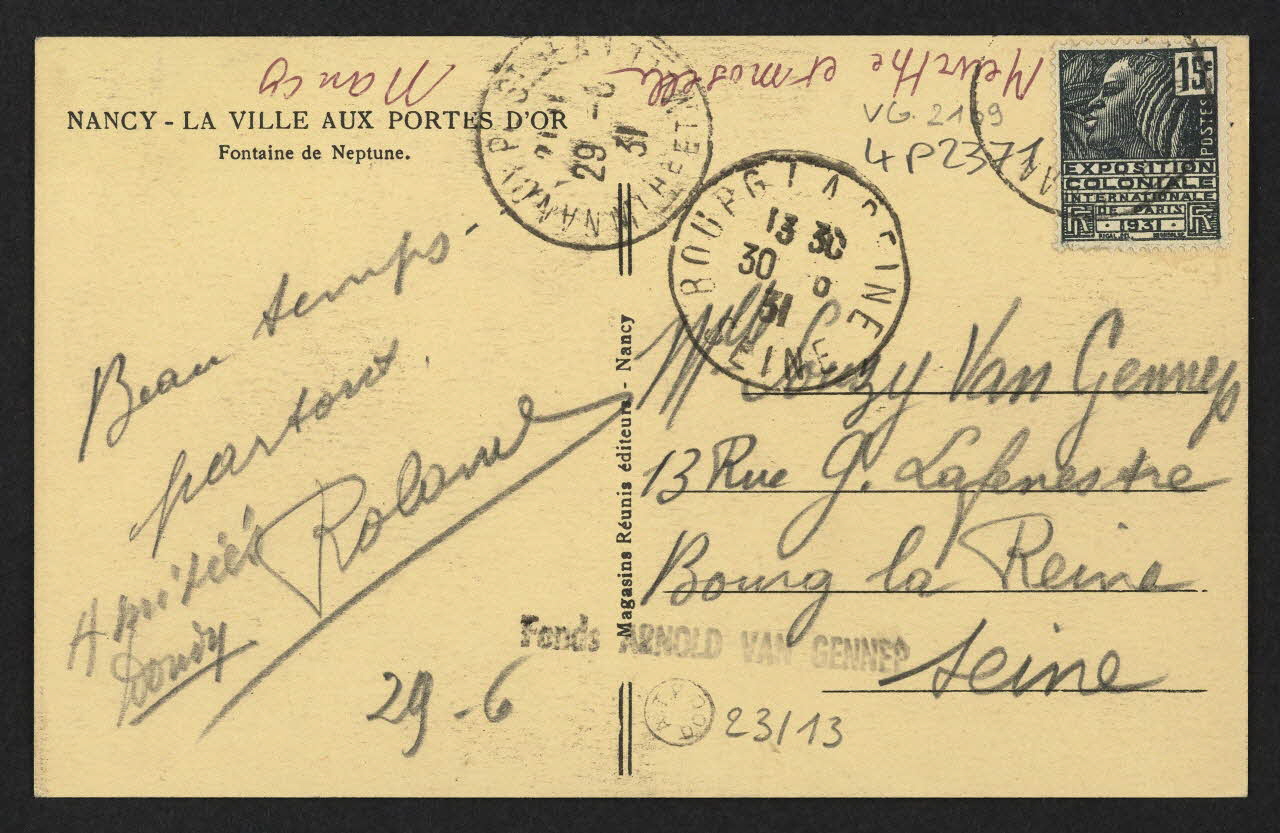 Meurthe et moselle
Nancy
NANCY - LA VILLE AUX PORTES D'OR
Fontaine de Neptune.
VG. 2169
4 P2371
15c
POSTES
EXPOSITION
COLONIALE
INTERNATIONALE
DE PARIS
RF · 1931 · RF
NANCY
29 - 6
31
BOURG LA REINE
13 30
30 6
31
SEINE
Beau temps
partout.
Roland
Amitiés
29 - 6
Magasins Réunis éditeurs - Nancy
Mlle Suzy Van Gennep
13 Rue G. Lafenestre
Bourg la Reine
Seine
Fonds ARNOLD VAN GENNEP
23/13